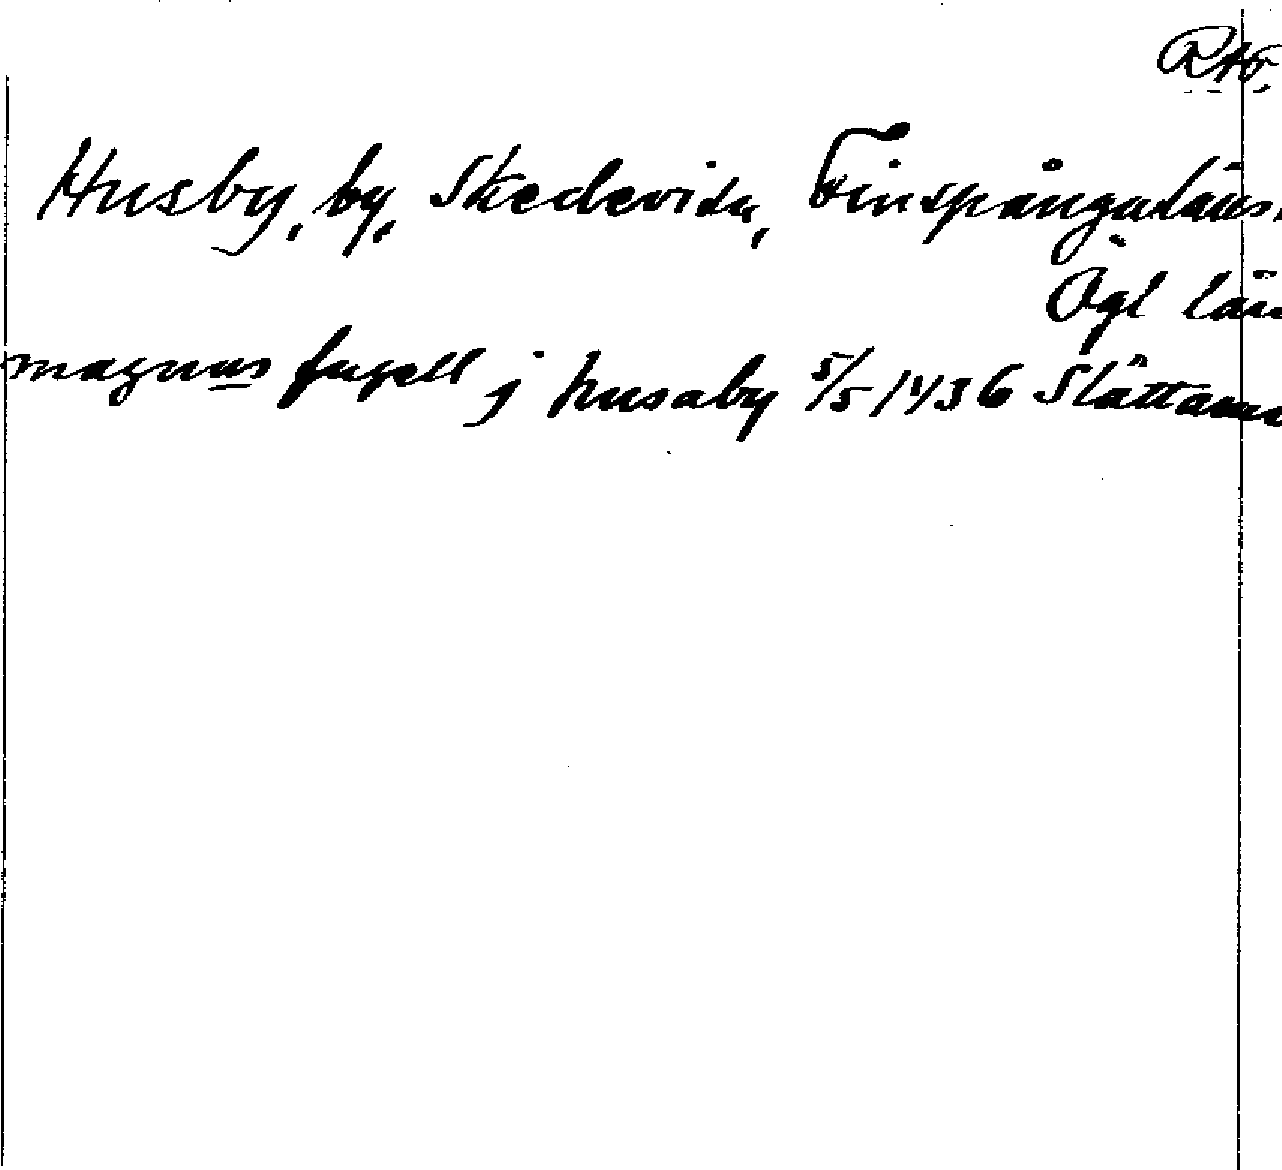 Husby, by, Skedevid, Finspångaläns
Ögl län
magnus fugell j husaby 5/5 1436